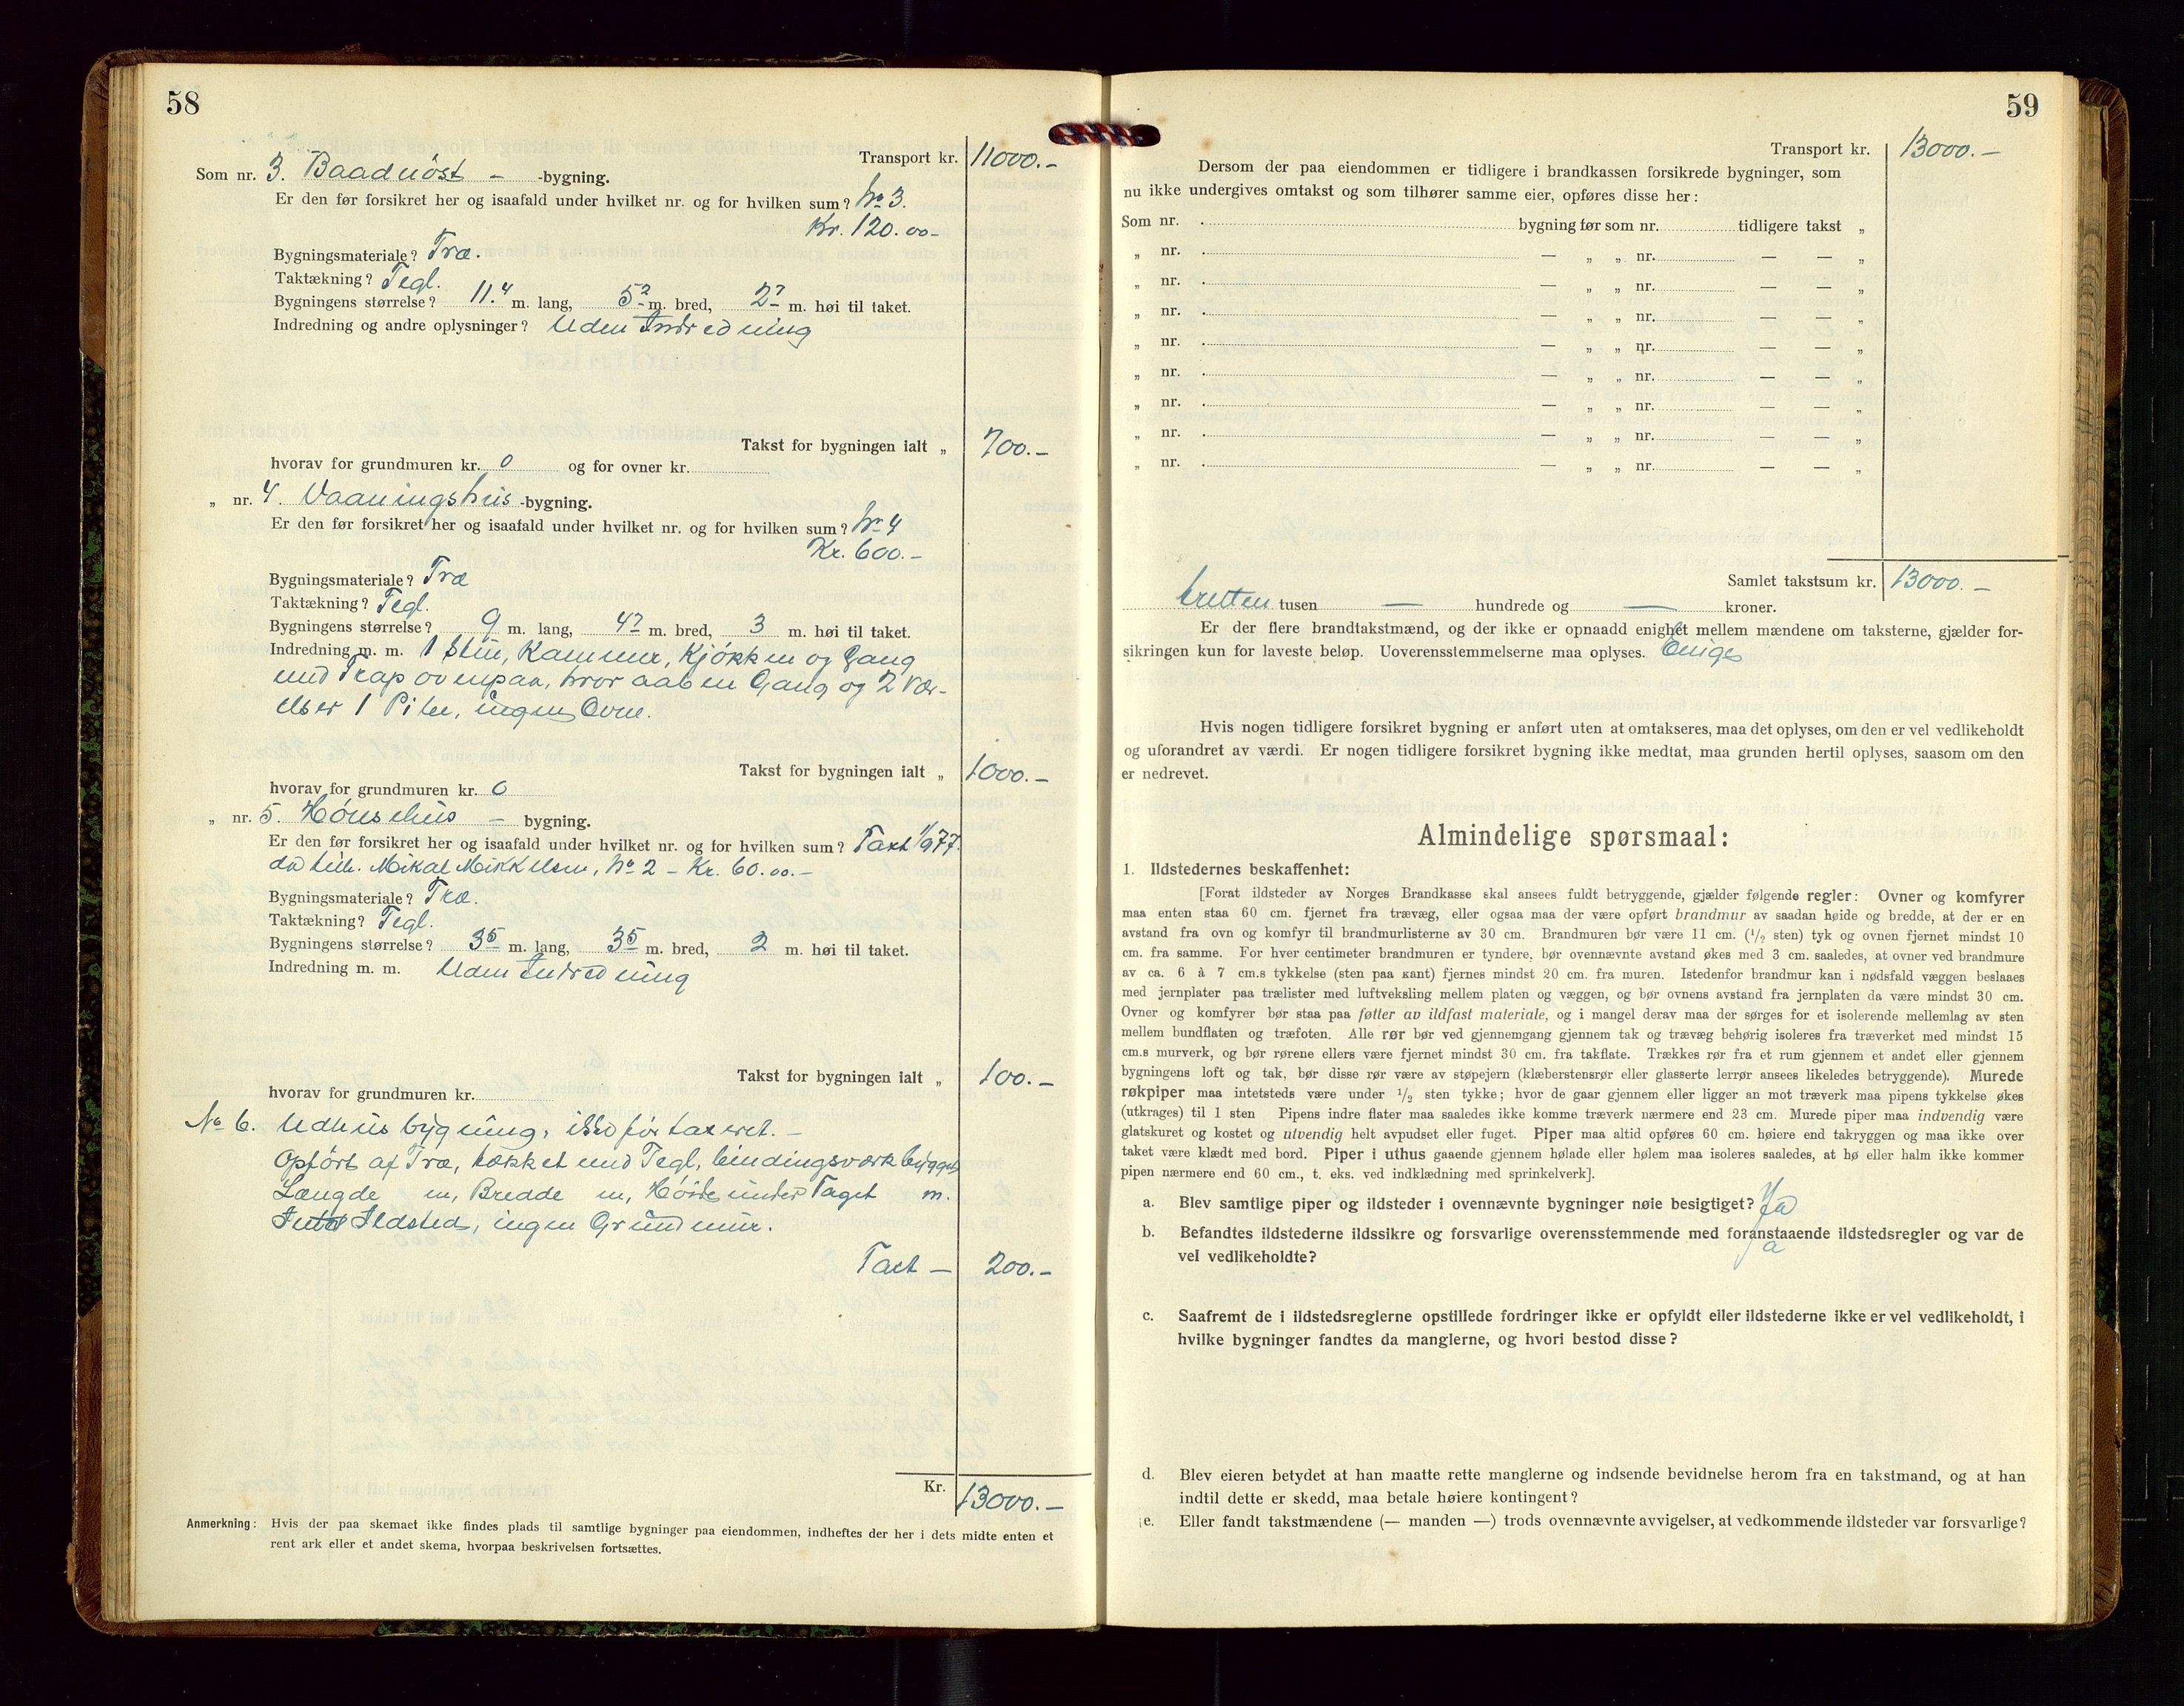 58
Transport kr. 11000.-
Som nr. 3. Baadnöst - -bygning.
Er den før forsikret her og isaafald under hvilket nr. og for hvilken sum? No 3.
Kr. 120.00-
Bygningsmateriale? Træ.
Taktækning? Tegl.
Bygningens størrelse? 11.4 m. lang, 5 2 m. bred, 2 7 m. høi til taket.
Indredning og andre oplysninger? Uden Indredning
Takst for bygningen ialt „ 700.-
hvorav for grundmuren kr. 0 og for ovner kr.
„ nr. 4. Vaaningshus -bygning.
Er den før forsikret her og isaafald under hvilket nr. og for hvilken sum? No 4
Kr. 600.-
Bygningsmateriale? Træ
Taktækning? Tegl.
Bygningens størrelse? 9 m. lang, 4 7 m. bred, 3 m. høi til taket.
Indredning m. m. 1 Stue, Kammer, Kjøkken og Gang
med Trap ovenpaa, hvor aaben Gang og 2 Vær-
elser 1 Pibe, ingen Ovne.
Takst for bygningen ialt „ 1000.-
hvorav for grundmuren kr. 0
„ nr. 5. Hönsehus - bygning.
Er den før forsikret her og isaafald under hvilket nr. og for hvilken sum? Taxt 1/9 77.
da tilh. Mikal Mikkelsen, No 2 - Kr. 60.00.-
Bygningsmateriale? Træ.
Taktækning? Tegl.
Bygningens størrelse? 3 5 m. lang, 3 5 m. bred, 2 m. høi til taket.
Indredning m. m. Uden Indredning
Takst for bygningen ialt „ 100.-
hvorav for grundmuren kr.
No 6. Udhusbygning, ikke før taxeret. -
Opført af Træ, tækket med Tegl, bindingsværk bygget
Længde m, Bredde m, Høide under Taget m.
Intet Ildsted, ingen Grundmur.
Taxt - 200.-
Kr. 13000.-
Anmerkning: Hvis der paa skemaet ikke findes plads til samtlige bygninger paa eiendommen, indheftes der her i dets midte enten et
rent ark eller et andet skema, hvorpaa beskrivelsen fortsættes.
59
Transport kr. 13000.-
Dersom der paa eiendommen er tidligere i brandkassen forsikrede bygninger, som
nu ikke undergives omtakst og som tilhører samme eier, opføres disse her:
Som nr. bygning før som nr. tidligere takst „
„ nr. — „ „ nr. — — „
„ nr. — „ „ nr. — — „
„ nr. — „ „ nr. — — „
„ nr. — „ „ nr. — — „
„ nr. — „ „ nr. — — „
„ nr. — „ „ nr. — — „
„ nr. — „ „ nr. — — „
„ nr. — „ „ nr. — — „
Samlet takstsum kr. 13000.-
tretten tusen — hundrede og — kroner.
Er der flere brandtakstmænd, og der ikke er opnaadd enighet mellem mændene om taksterne, gjælder for-
sikringen kun for laveste beløp. Uoverensstemmelserne maa oplyses. Enige
Hvis nogen tidligere forsikret bygning er anført uten at omtakseres, maa det oplyses, om den er vel vedlikeholdt
og uforandret av værdi. Er nogen tidligere forsikret bygning ikke medtat, maa grunden hertil oplyses, saasom om den
er nedrevet.
Almindelige spørsmaal:
1. Ildstedernes beskaffenhet:
[Forat ildsteder av Norges Brandkasse skal ansees fuldt betryggende, gjælder følgende regler: Ovner og komfyrer
maa enten staa 60 cm. fjernet fra trævæg, eller ogsaa maa der være opført brandmur av saadan høide og bredde, at der er en
avstand fra ovn og komfyr til brandmurlisterne av 30 cm. Brandmuren bør være 11 cm. (1/2 sten) tyk og ovnen fjernet mindst 10
cm. fra samme. For hver centimeter brandmuren er tyndere, bør ovennævnte avstand økes med 3 cm. saaledes, at ovner ved brandmure
av ca. 6 à 7 cm.s tykkelse (sten paa kant) fjernes mindst 20 cm. fra muren. Istedenfor brandmur kan i nødsfald væggen beslaaes
med jernplater paa trælister med luftveksling mellem platen og væggen, og bør ovnens avstand fra jernplaten da være mindst 30 cm.
Ovner og komfyrer bør staa paa føtter av ildfast materiale, og i mangel derav maa der sørges for et isolerende mellemlag av sten
mellem bundflaten og træfoten. Alle rør bør ved gjennemgang gjennem tak og trævæg behørig isoleres fra træverket med mindst 15
cm.s murverk, og bør rørene ellers være fjernet mindst 30 cm. fra takflate. Trækkes rør fra et rum gjennem et andet eller gjennem
bygningens loft og tak, bør disse rør være av støpejern (klæberstensrør eller glasserte lerrør ansees likeledes betryggende). Murede
røkpiper maa intetsteds være under 1/2 sten tykke; hvor de gaar gjennem eller ligger an mot træverk maa pipens tykkelse økes
(utkrages) til 1 sten Pipens indre flater maa saaledes ikke komme træverk nærmere end 23 cm. Murede piper maa indvendig være
glatskuret og kostet og utvendig helt avpudset eller fuget. Piper maa altid opføres 60 cm. høiere end takryggen og maa ikke over
taket være klædt med bord. Piper i uthus gaaende gjennem hølade eller hølem maa isoleres saaledes, at hø eller halm ikke kommer
pipen nærmere end 60 cm., t. eks. ved indklædning med sprinkelverk].
a. Blev samtlige piper og ildsteder i ovennævnte bygninger nøie besigtiget? Ja
b. Befandtes ildstederne ildssikre og forsvarlige overensstemmende med foranstaaende ildstedsregler og var de
vel vedlikeholdte? Ja
c. Saafremt de i ildstedsreglerne opstillede fordringer ikke er opfyldt eller ildstederne ikke er vel vedlikeholdt, i
hvilke bygninger fandtes da manglerne, og hvori bestod disse?
d. Blev eieren betydet at han maatte rette manglerne og indsende bevidnelse herom fra en takstmand, og at han
indtil dette er skedd, maa betale høiere kontingent?
e. Eller fandt takstmændene (— manden —) trods ovennævnte avvigelser, at vedkommende ildsteder var forsvarlige?